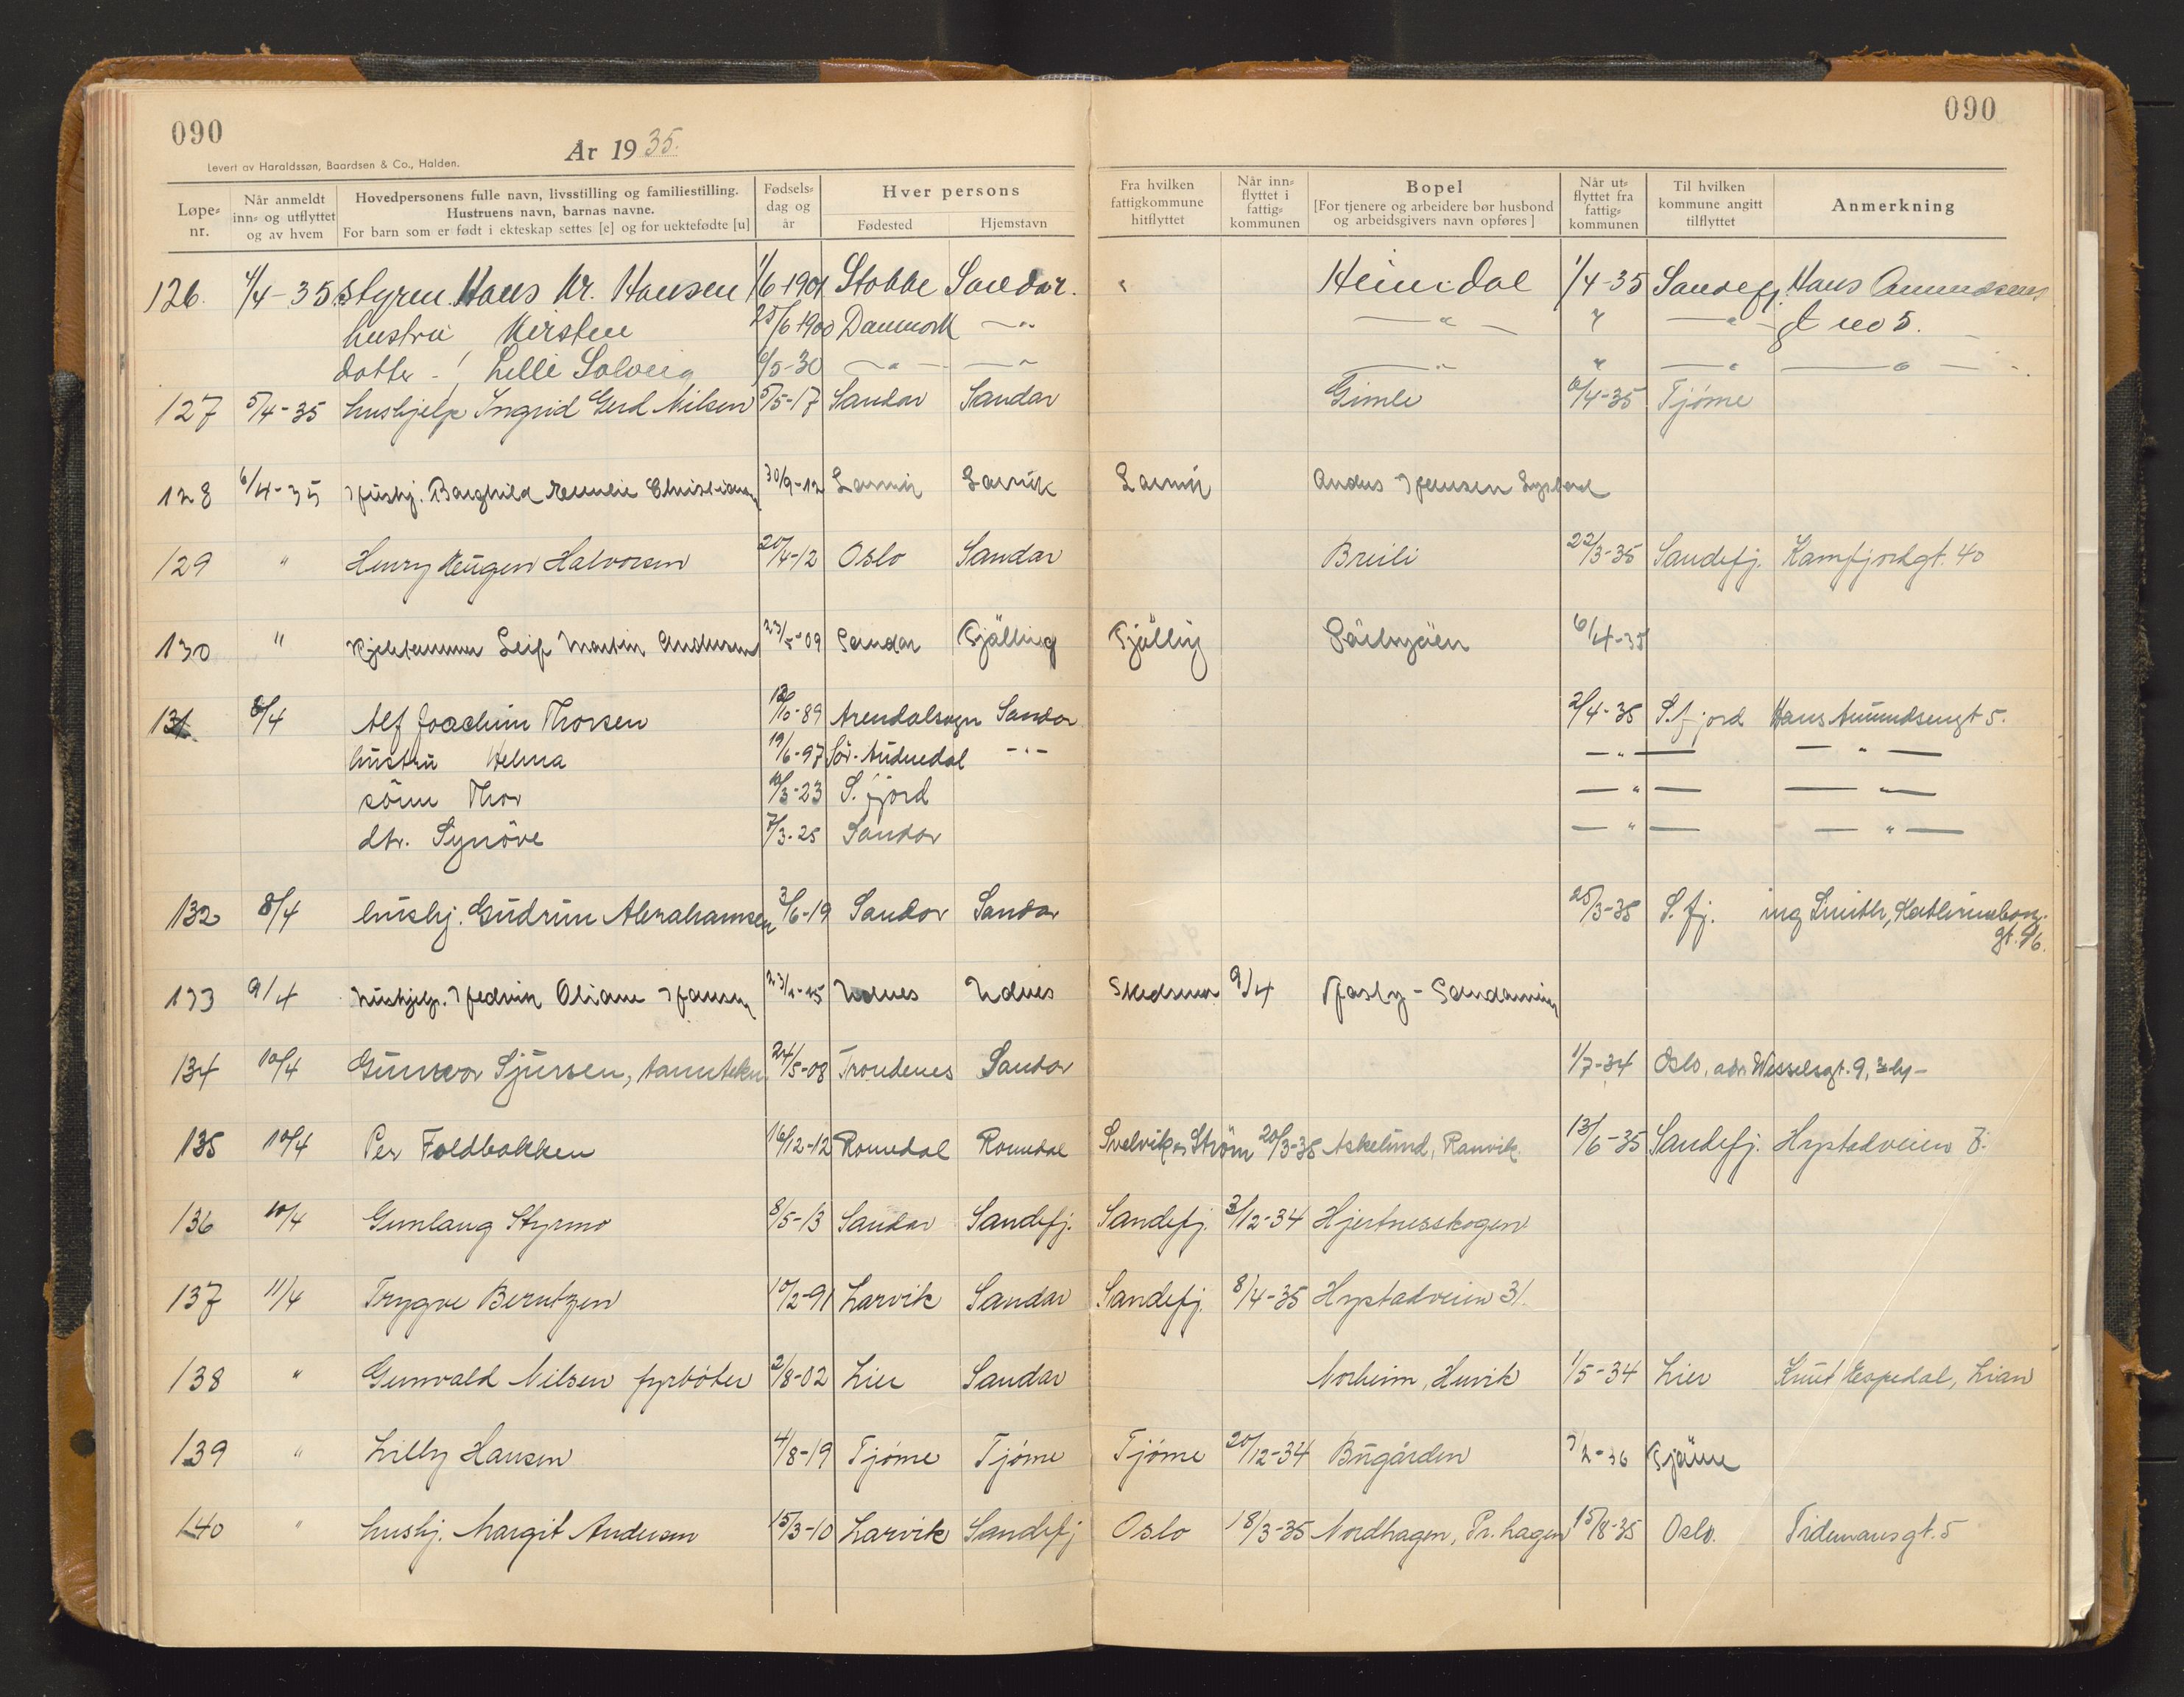 090
090
Levert av Haraldssøn, Baardsen & Co., Halden.
År 1935.
Løpe-nr.
Når anmeldt inn- og utflyttet og av hvem
Hovedpersonens fulle navn, livsstilling og familiestilling. Hustruens navn, barnas navne. For barn som er født i ekteskap settes [e] og for uektefødte [u]
Fødsels-dag og år
Hver persons
Fødested
Hjemstavn
Fra hvilken fattigkommune hitflyttet
Når inn-flyttet i fattig-kommunen
Bopel
[For tjenere og arbeidere bør husbond og arbeidsgivers navn opføres]
Når ut-flyttet fra fattig-kommunen
Til hvilken kommune angitt tilflyttet
Anmerkning
126. 4/4-35 Styrm. Hans Kr. Hansen 1/6 1901 Stokke Sandar. " Heimdal 1/4-35 Sandefj. Hans Amundsens
hustru Kirsten 25/6 1900 Danmark -"- -"- " -"- gt no 5.
datter Lilli Solveig 6/5-30 -"- -"- -"- " -"- -"-
127 5/4-35 hushjelp Ingrid Gerd Nilsen 5/5-17 Sandar Sandar Gimle 6/4-35 Tjøme
128 6/4-35 Hushj. Borghild 30/9-12 Larvik Larvik Larvik
129 " Henry Eugen Halvorsen 20/4-12 Oslo Sandar Breili 22/3-35 Sandefj. Kamfjordgt. 40
130 " Leif Martin Andersen 23/5-09 Sandar Tjølling Tjølling 6/4-35
131 8/4 Alf Joachim Thorsen 12/10-89 Arendalsogn Sandar 2/4-35 S.fjord Hans Amundsengt 5.
hustru Helma 19/6-97 Sør-Audnedal -"- -"- -"-
sønn Thor 10/3-23 S.fjord -"- -"-
dtr. Synøve 7/3-25 Sandar -"- -"-
132 8/4 hushj. Gudrun Abrahamsen 3/6-19 Sandar Sandar 25/3-35 S.fj. ing Smith, Kathrineborg-
gt. 46.
133 9/4 hushjelp. Hedvik Oliane Hansen Udnes Udnes Skedsmo 9/4
134 10/4 Gunvor Sjursen, tanntekn. 24/5-08 Trondenes Sandar 1/7-34 Oslo, adr. Wesselsgt. 9, 3dy-
135 10/4 Per Foldbakken 16/12-12 Romedal Romedal Svelvik Strøm 20/3-35 Askelund, Ranvik. 13/6-35 Sandefj. Hystadveien 7.
136 10/4 Gunlaug Styrmo 8/5-13 Sandar Sandefj. Sandefj. 3/12-34 Hjertnesskogen
137 11/4 Trygve Berntzen 10/2-91 Larvik Sandar Sandefj. 8/4-35 Hystadveien 31.
138 " Gunvald Nilsen fyrbøter 2/8-02 Lier Sandar Norheim, Huvik 1/5-34 Lier Knut Espedal, Lian
139 " Lilly Hansen 4/8-19 Tjøme Tjøme Tjøme 20/12-34 Bugården 3/2-36 Tjøme
140 " hushj. Margit Andersen 15/3-10 Larvik Sandefj Oslo 18/3-35 Nordhagen, Pr. hagen 15/8-35 Oslo. Tidemansgt. 5